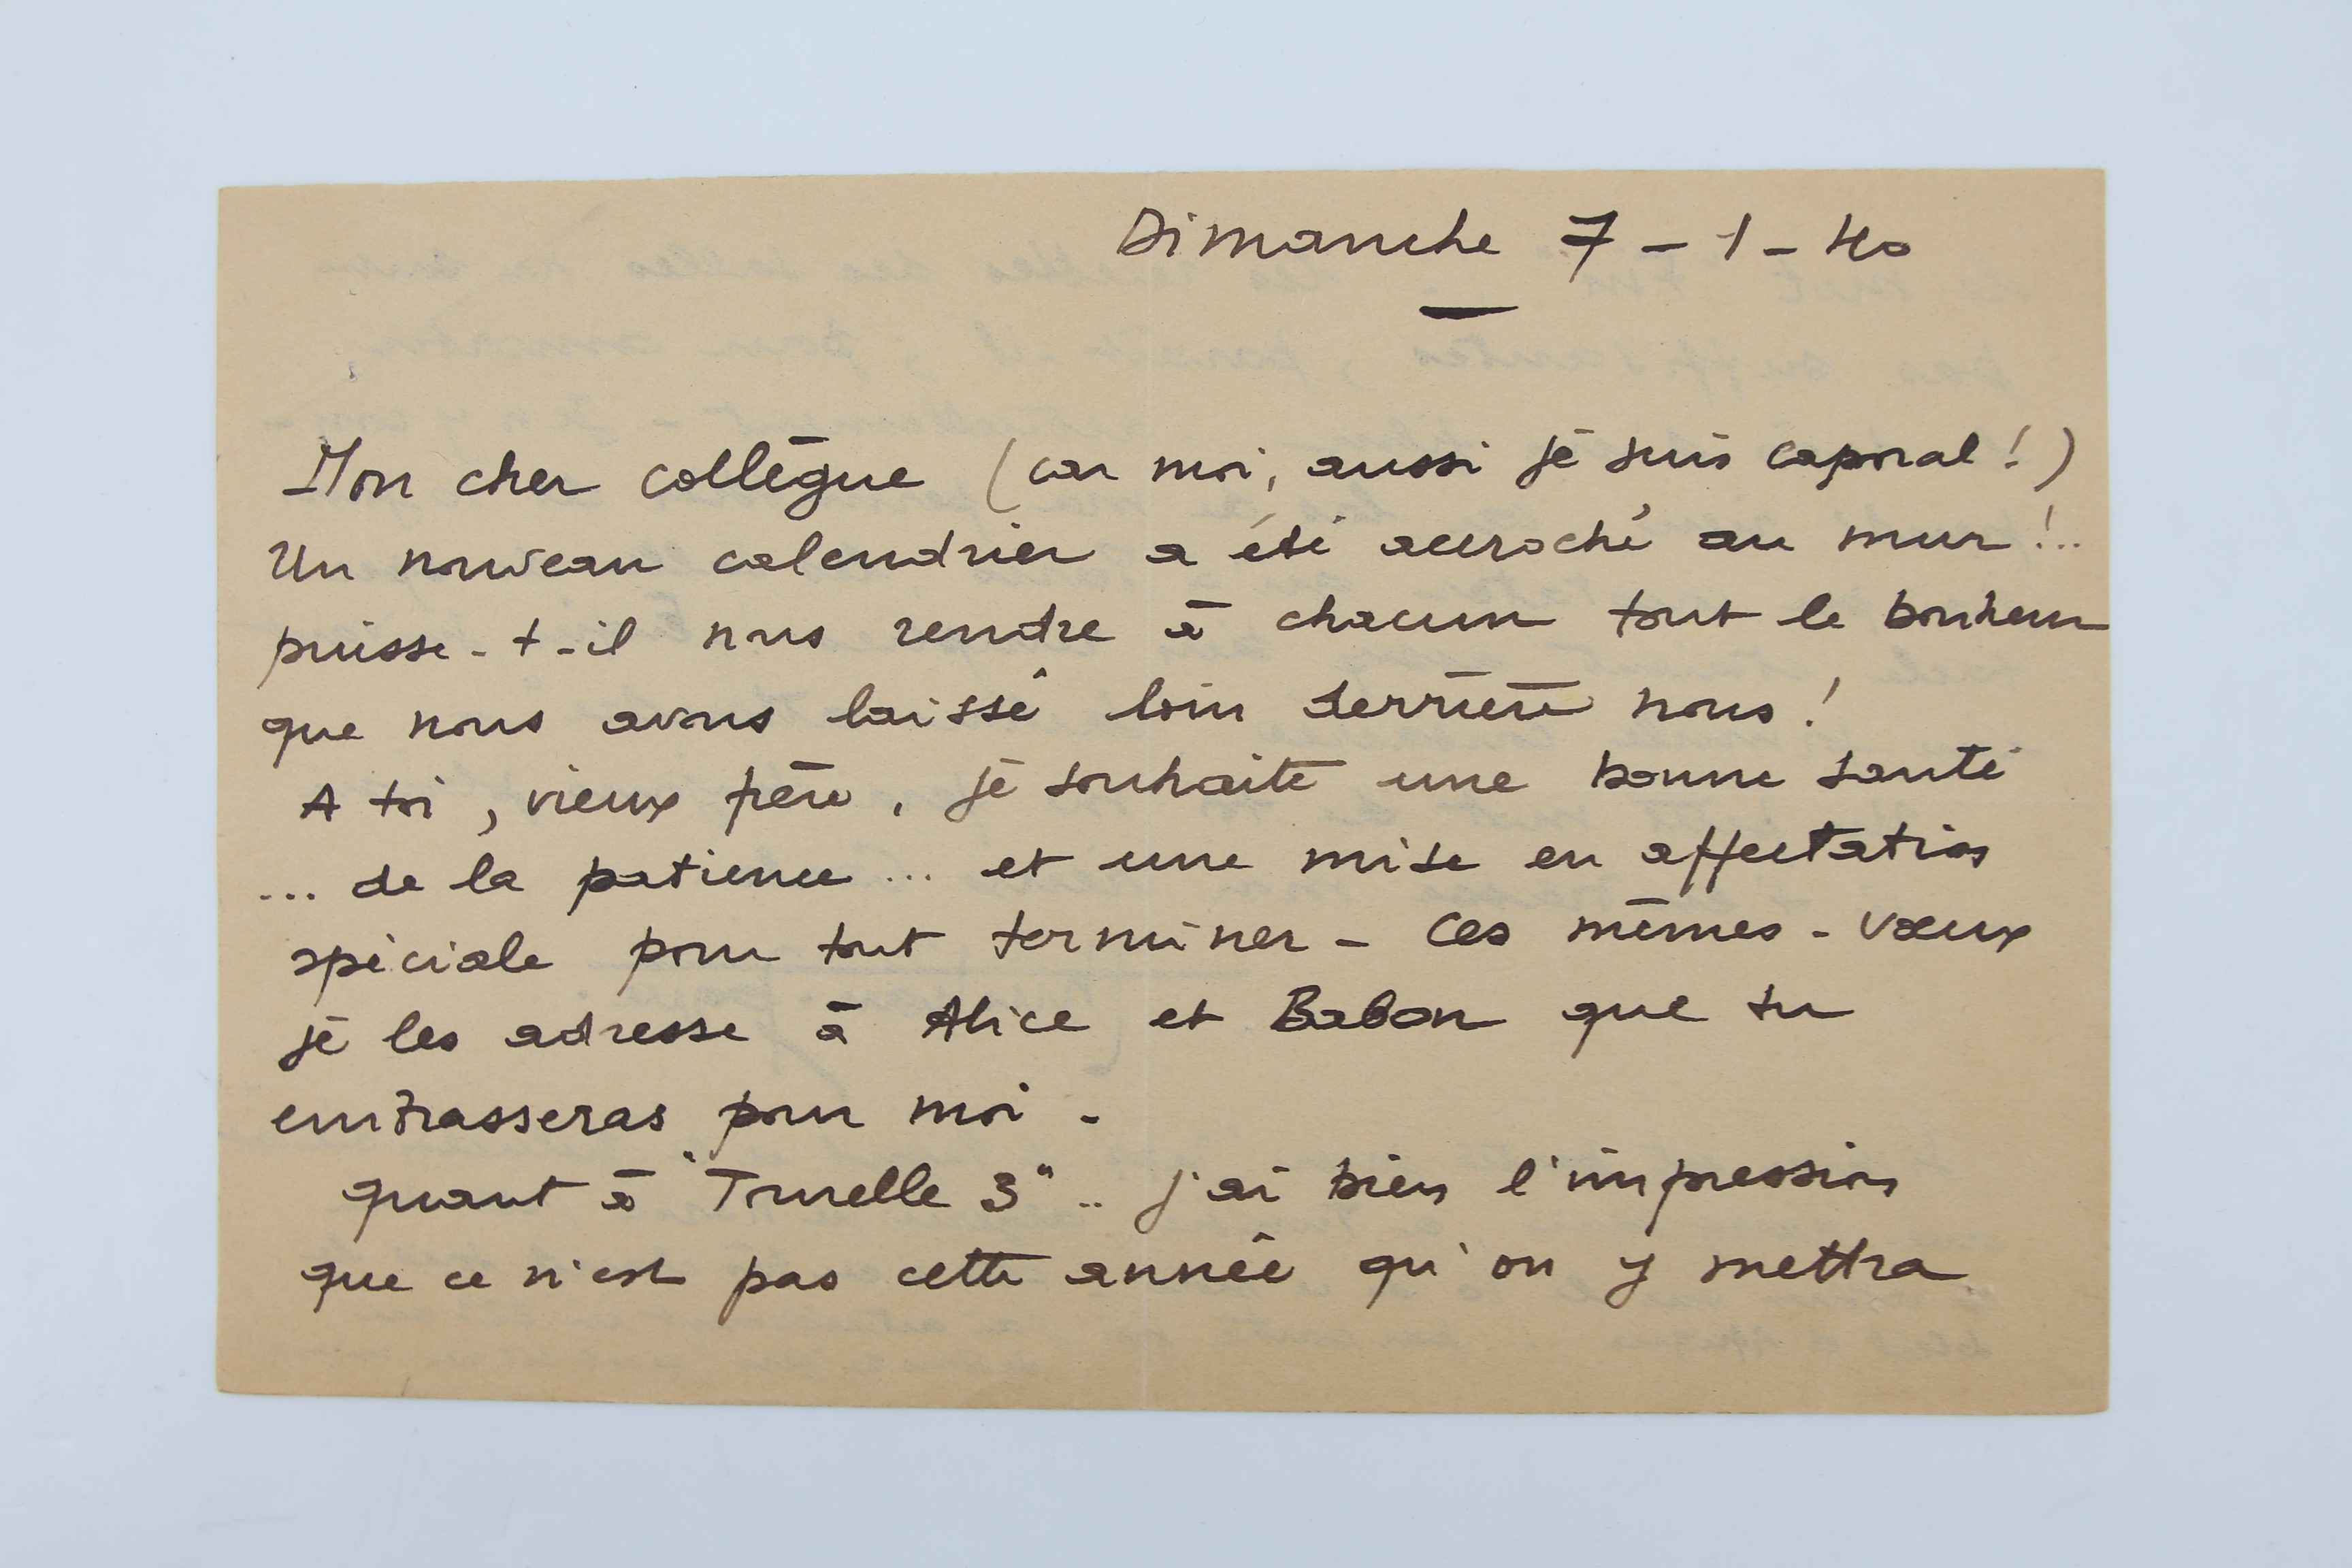 Dimanche 7 - 1 - 40
Mon cher collègue (car moi, aussi je suis caporal !)
Un nouveau calendrier a été accroché au mur !..
puisse-t-il nous rendre à chacun tout le bonheur
que nous avons laissé loin derrière nous !
A toi, vieux frère, je souhaite une bonne santé
... de la patience ... et une mise en affectation
spéciale pour tout terminer - Ces mêmes - vœux
je les adresse à Alice et Babon que tu
embrasseras pour moi -
quant à "Truelle 3" .. j'ai bien l'impression
que ce n'est pas cette année qu'on y mettra